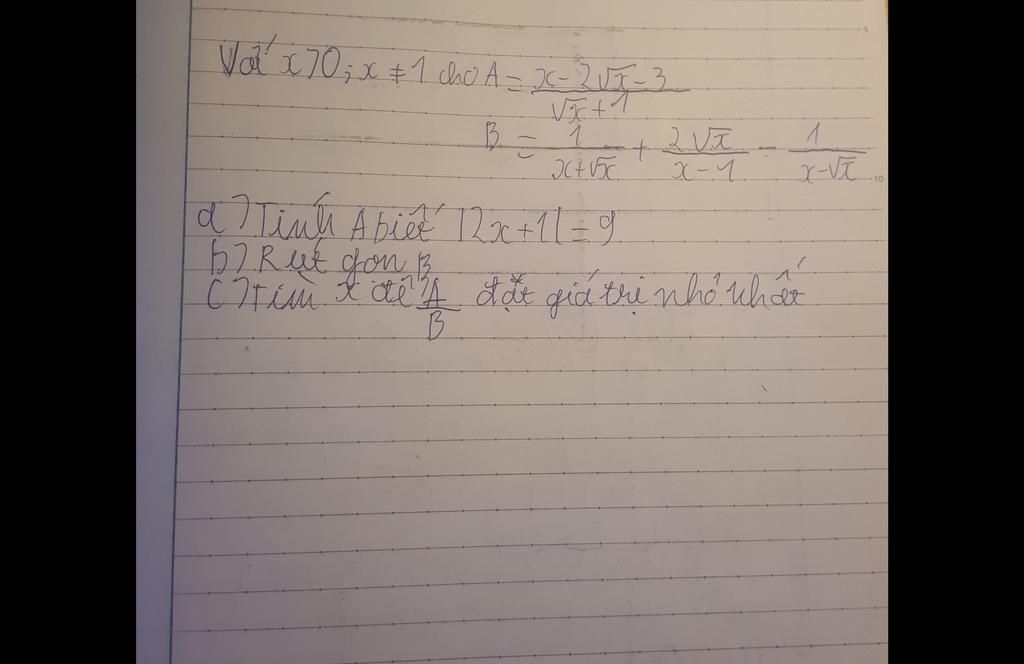 Với x>0; x ≠ 1 cho A = (x - 2√x - 3)/(√x + 1)
B = 1/(x+√x) + 2√x/(x-1) - 1/(x-√x)
a) Tính A biết |2x+1| = 9
b) Rút gọn B
c) Tìm x để A/B đặt giá trị nhỏ nhất